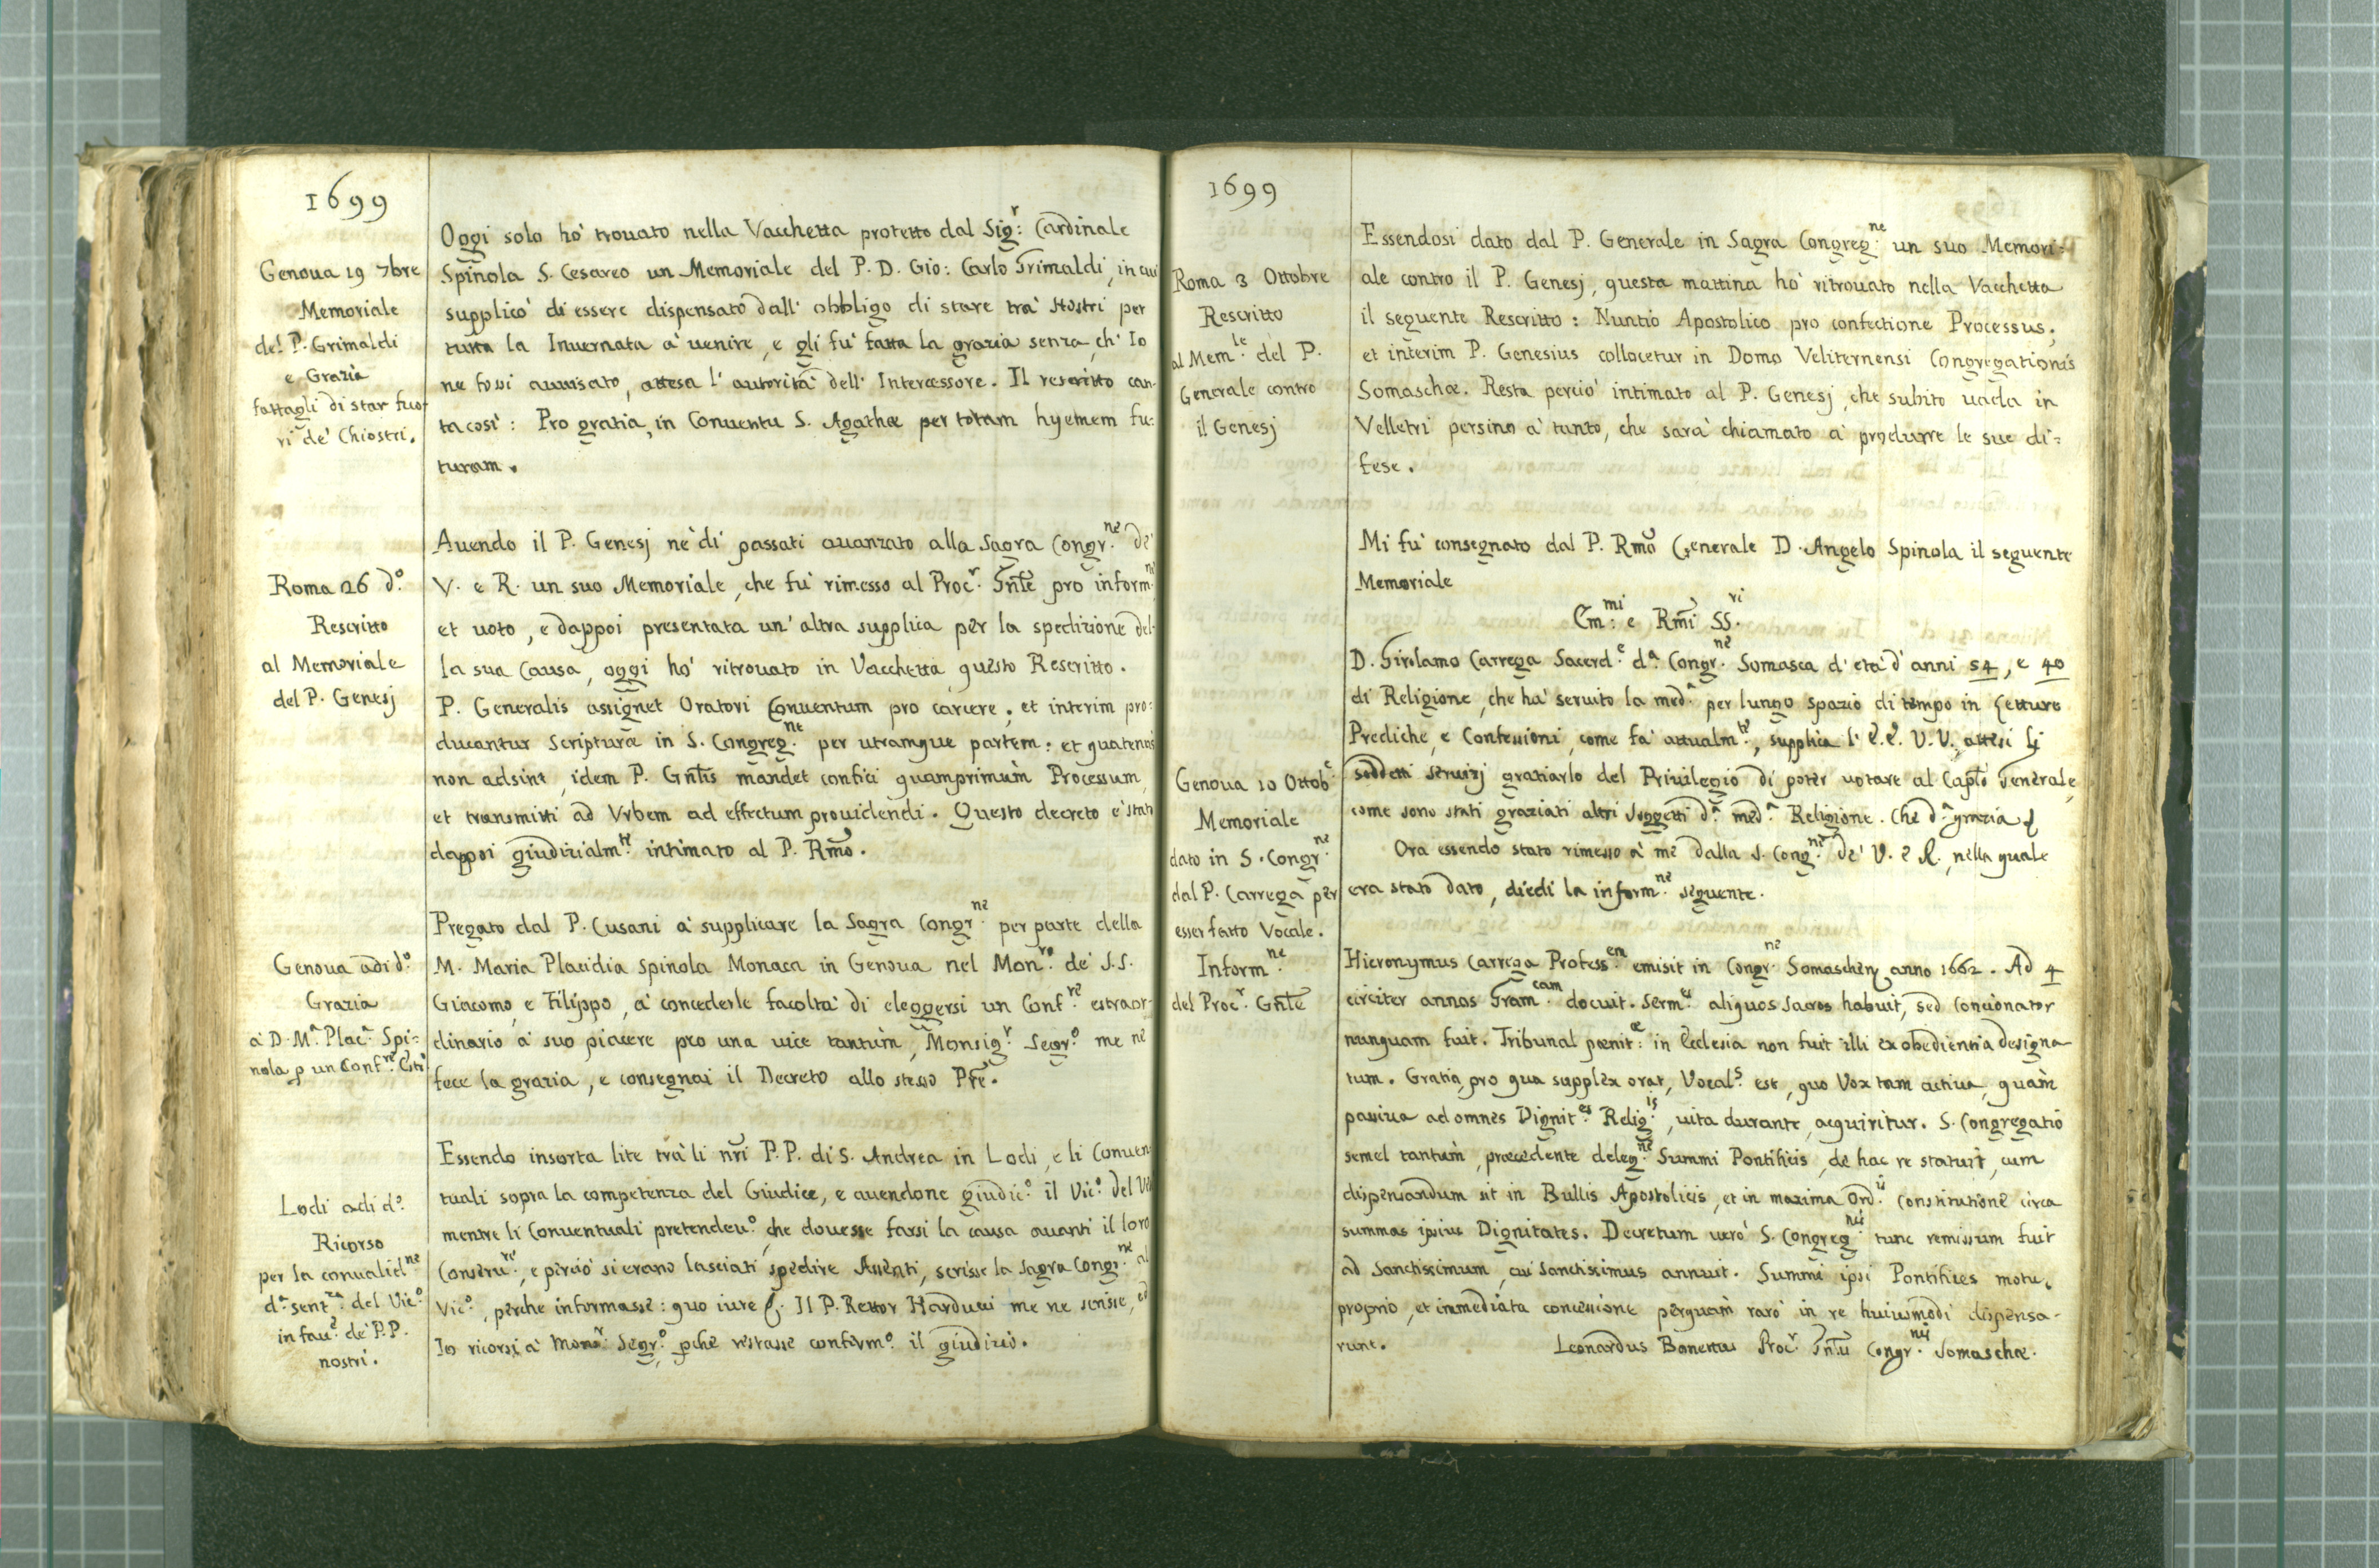 1699
Genoua 19 7bre
Memoriale
del P. Grimaldi
e Grazia
fattagli di star fuo=
ri de' Chiostri.
Oggi solo hò trouato nella Vacchetta protetto dal Sig:r Cardinale
Spinola S. Cesareo un Memoriale del P. D. Gio: Carlo Grimaldi, in cui
supplicò di essere dispensato dall' obbligo di stare trà Nostri per
tutta la Inuernata à uenire, e gli fù fatta la grazia senza, ch' Io
ne fossi auuisato, attesa l' autorità dell' Intercessore. Il rescritto can=
ta così: Pro gratia, in Conuentu S. Agathæ per totam hyemem fu=
turam.
Roma 26 d.o
Rescritto
al Memoriale
del P. Genesj
Auendo il P. Genesj ne' dì passati auanzato alla Sagra Congr.ne de'
V. e R. un suo Memoriale, che fù rimesso al Proc.r Gnle pro inform.ni
et uoto, e dappoi presentata un' altra supplica per la spedizione del=
la sua Causa, oggi hò ritrouato in Vacchetta questo Rescritto.
P. Generalis assignet Oratori Conuentum pro carcere; et interim pro=
ducantur Scripturæ in S. Congreg.ne per utramque partem: et quatenus
non adsint, idem P. Gnlis mandet confici quamprimùm Processum,
et transmitti ad Vrbem ad effectum prouidendi. Questo decreto è stato
dappoi giudizialm.te intimato al P. Rmo.
Genoua adì d.o
Grazia
à D. M.a Plac.a Spi=
nola p un Conf.re Estr
Pregato dal P. Cusani à supplicare la Sagra Congr.ne per parte della
M. Maria Placidia Spinola Monaca in Genoua nel Mon.ro de' S.S.
Giacomo, e Filippo, à concederle facoltà di eleggersi un Conf.re estraor=
dinario à suo piacere pro una uice tantùm, Monsig.r Segr.o me ne
fece la grazia, e consegnai il Decreto allo stesso Pre.
Lodi adì d.o
Ricorso
per la conualid.ne
d.a sent.za del Vic.o
in fau.e de' P.P.
nostri.
Essendo insorta lite trà li nri P.P. di S. Andrea in Lodi, e li Conuen
tuali sopra la competenza del Giudice, e auendone giudic.o il Vic.o del
mentre li Conuentuali pretendeu.o, che douesse farsi la causa auanti il loro
Conseru.re, e perciò si erano lasciati spedire Assenti, scrisse la Sagra Congr.ne al
Vic.o, perche informasse: quo iure &. Il P. Rettor Harducci me ne scrisse, ed
Io ricorsi à Mons.r Segr.o, pche restasse conferm.o il giudizio.
1699
Roma 3 Ottobre
Rescritto
al Mem.le del P.
Generale contro
il Genesj
Essendosi dato dal P. Generale in Sagra Congreg.ne un suo Memori=
ale contro il P. Genesj, questa mattina hò ritrouato nella Vacchetta
il seguente Rescritto: Nuntio Apostolico pro confectione Processus;
et interim P. Genesius collocetur in Domo Veliternensi Congregationis
Somaschæ. Resta perciò intimato al P. Genesj, che subito uada in
Velletri persino à tanto, che sarà chiamato à produrre le sue di=
fese.
Mi fù consegnato dal P. Rmo Generale D. Angelo Spinola il seguente
Memoriale
Em:mi e Rmi SS.ri
Genoua 10 Ottob.e
Memoriale
dato in S. Congr.ne
dal P. Carrega per
esser fatto Vocale.
Inform.ne
del Proc.r Gnle
D. Girolamo Carrega Sacerd.e d.a Congr.ne Somasca d' età d' anni 54, e 40
di Religione, che hà seruito la med.a per lungo spazio di tempo in Letture
Prediche, e Confessioni, come fà attualm.te, supplica l' E.E. V.V. attesi li
soddetti seruizj graziarlo del Priuilegio di poter uotare al Caplo Generale,
come sono stati graziati altri soggetti d.a med.a Religione. Che d.a grazia &
Ora essendo stato rimesso à me dalla S. Cong.ne de' V. e R. nella quale
era stato dato, diedi la inform.ne seguente.
Hieronymus Carrega Profess.en emisit in Congr.ne Somaschen anno 1662. Ad 4
circiter annos Gram.cam docuit. Serm.es aliquos sacros habuit, sed Concionator
nunquam fuit. Tribunal pœnit:æ in Ecclesia non fuit illi ex obedientia designa
tum. Gratia, pro qua supplex orat, Vocal.s est, quo Vox tam actiua, quàm
passiua ad omnes Dignit.es Relig.is, uita durante, acquiritur. S. Congregatio
semel tantùm, præcedente deleg.ne Summi Pontificis, de hac re statuit, cum
dispensandum sit in Bullis Apostolicis, et in maxima Ord.is Constitutione circa
summas ipsius Dignitates. Decretum uerò S. Congreg.nis tunc remissum fuit
ad Sanctissimum, cui Sanctissimus annuit. Summi ipsi Pontifices motu,
proprio, et inmediata concessione perquam rarò in re huiusmodi dispensa-
runt.
Leonardus Bonettus Proc.r Gnlis Congr.nis Somaschæ.